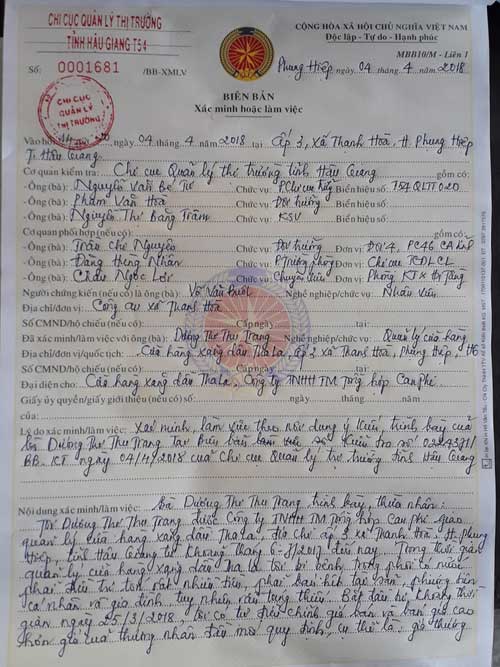 CHI CỤC QUẢN LÝ THỊ TRƯỜNG
TỈNH HẬU GIANG T54
Số: 0001681 /BB-XMLV
CHI CỤC
QUẢN LÝ
THỊ TRƯỜNG
CỘNG HÒA XÃ HỘI CHỦ NGHĨA VIỆT NAM
Độc lập - Tự do - Hạnh phúc
MBB10/M - Liên 1
Phụng Hiệp, ngày 04 tháng 4 năm 2018
BIÊN BẢN
Xác minh hoặc làm việc
Vào hồi ngày 04 tháng 4 năm 2018 tại Ấp 3, xã Thạnh Hòa, H. Phụng Hiệp
T. Hậu Giang
Cơ quan kiểm tra: Chi cục Quản lý thị trường tỉnh Hậu Giang gồm có:
- Ông (bà): Nguyễn Văn Bé Tư Chức vụ: PChi cục trưởng Biển hiệu số: T54 QLTT 020
- Ông (bà): Phạm Văn Hòa Chức vụ: Đội trưởng Biển hiệu số:
- Ông (bà): Nguyễn Thị Băng Trâm Chức vụ: KSV Biển hiệu số:
Cơ quan phối hợp (nếu có): gồm có:
- Ông (bà): Trần Chí Nguyễn Chức vụ: Đội trưởng Đơn vị: Đội 4, PC46 CA tỉnh
- Ông (bà): Đặng Hùng Nhân Chức vụ: P Trưởng phòng Đơn vị: Chi cục TCĐLCL
- Ông (bà): Châu Ngọc Lợi Chức vụ: Chuyên viên Đơn vị: Phòng KTX Hạ Tầng
Người chứng kiến (nếu có) là ông (bà): Võ Văn Nghề nghiệp/chức vụ: Nhân viên
Địa chỉ/đơn vị: Công an xã Thạnh Hòa
Số CMND/hộ chiếu (nếu có): Cấp ngày tại:
Đã xác minh/làm việc với ông (bà): Dương Thị Thu Trang Nghề nghiệp/chức vụ: Quản lý cửa hàng
Địa chỉ/đơn vị/quốc tịch: Cửa hàng xăng dầu ThaLa, ấp 3 xã Thạnh Hòa, Phụng Hiệp, HG
Số CMND/hộ chiếu (nếu có): Cấp ngày tại:
Đại diện cho: Cửa hàng xăng dầu ThaLa, Công ty TNHH TM Tổng hợp Cần Phê
Giấy ủy quyền/giấy giới thiệu (nếu có) số: ngày
của:
Lý do xác minh/làm việc: Xác minh, làm việc theo nội dung ý kiến, trình bày của
bà Dương Thị Thu Trang Tại Biên bản kiểm tra số
BB.KT ngày 04/4/2018 của Chi cục Quản lý thị trường tỉnh Hậu Giang
Nội dung xác minh/làm việc: Bà Dương Thị Thu Trang trình bày, thừa nhận:
Tôi Dương Thị Thu Trang được Công ty TNHH TM Tổng hợp Cần Phê giao
quản lý cửa hàng xăng dầu ThaLa, địa chỉ ấp 3 xã Thạnh Hòa, H. Phụng
Hiệp, tỉnh Hậu Giang từ khoảng tháng 6-8/2017 đến nay. Trong thời gian
quản lý cửa hàng xăng dầu ThaLa tôi bị bệnh trong phổi có nước
phải điều trị tốn rất nhiều tiền, phải bán hết tài sản, phương tiện
cá nhân và gia đình tuy nhiên vẫn túng thiếu. Bắt đầu từ khoảng thời
gian ngày 25/3/2018 tôi có tự điều chỉnh giá bán và bán giá cao
hơn giá của thương nhân đầu mối quy định, cụ thể là: giá thương